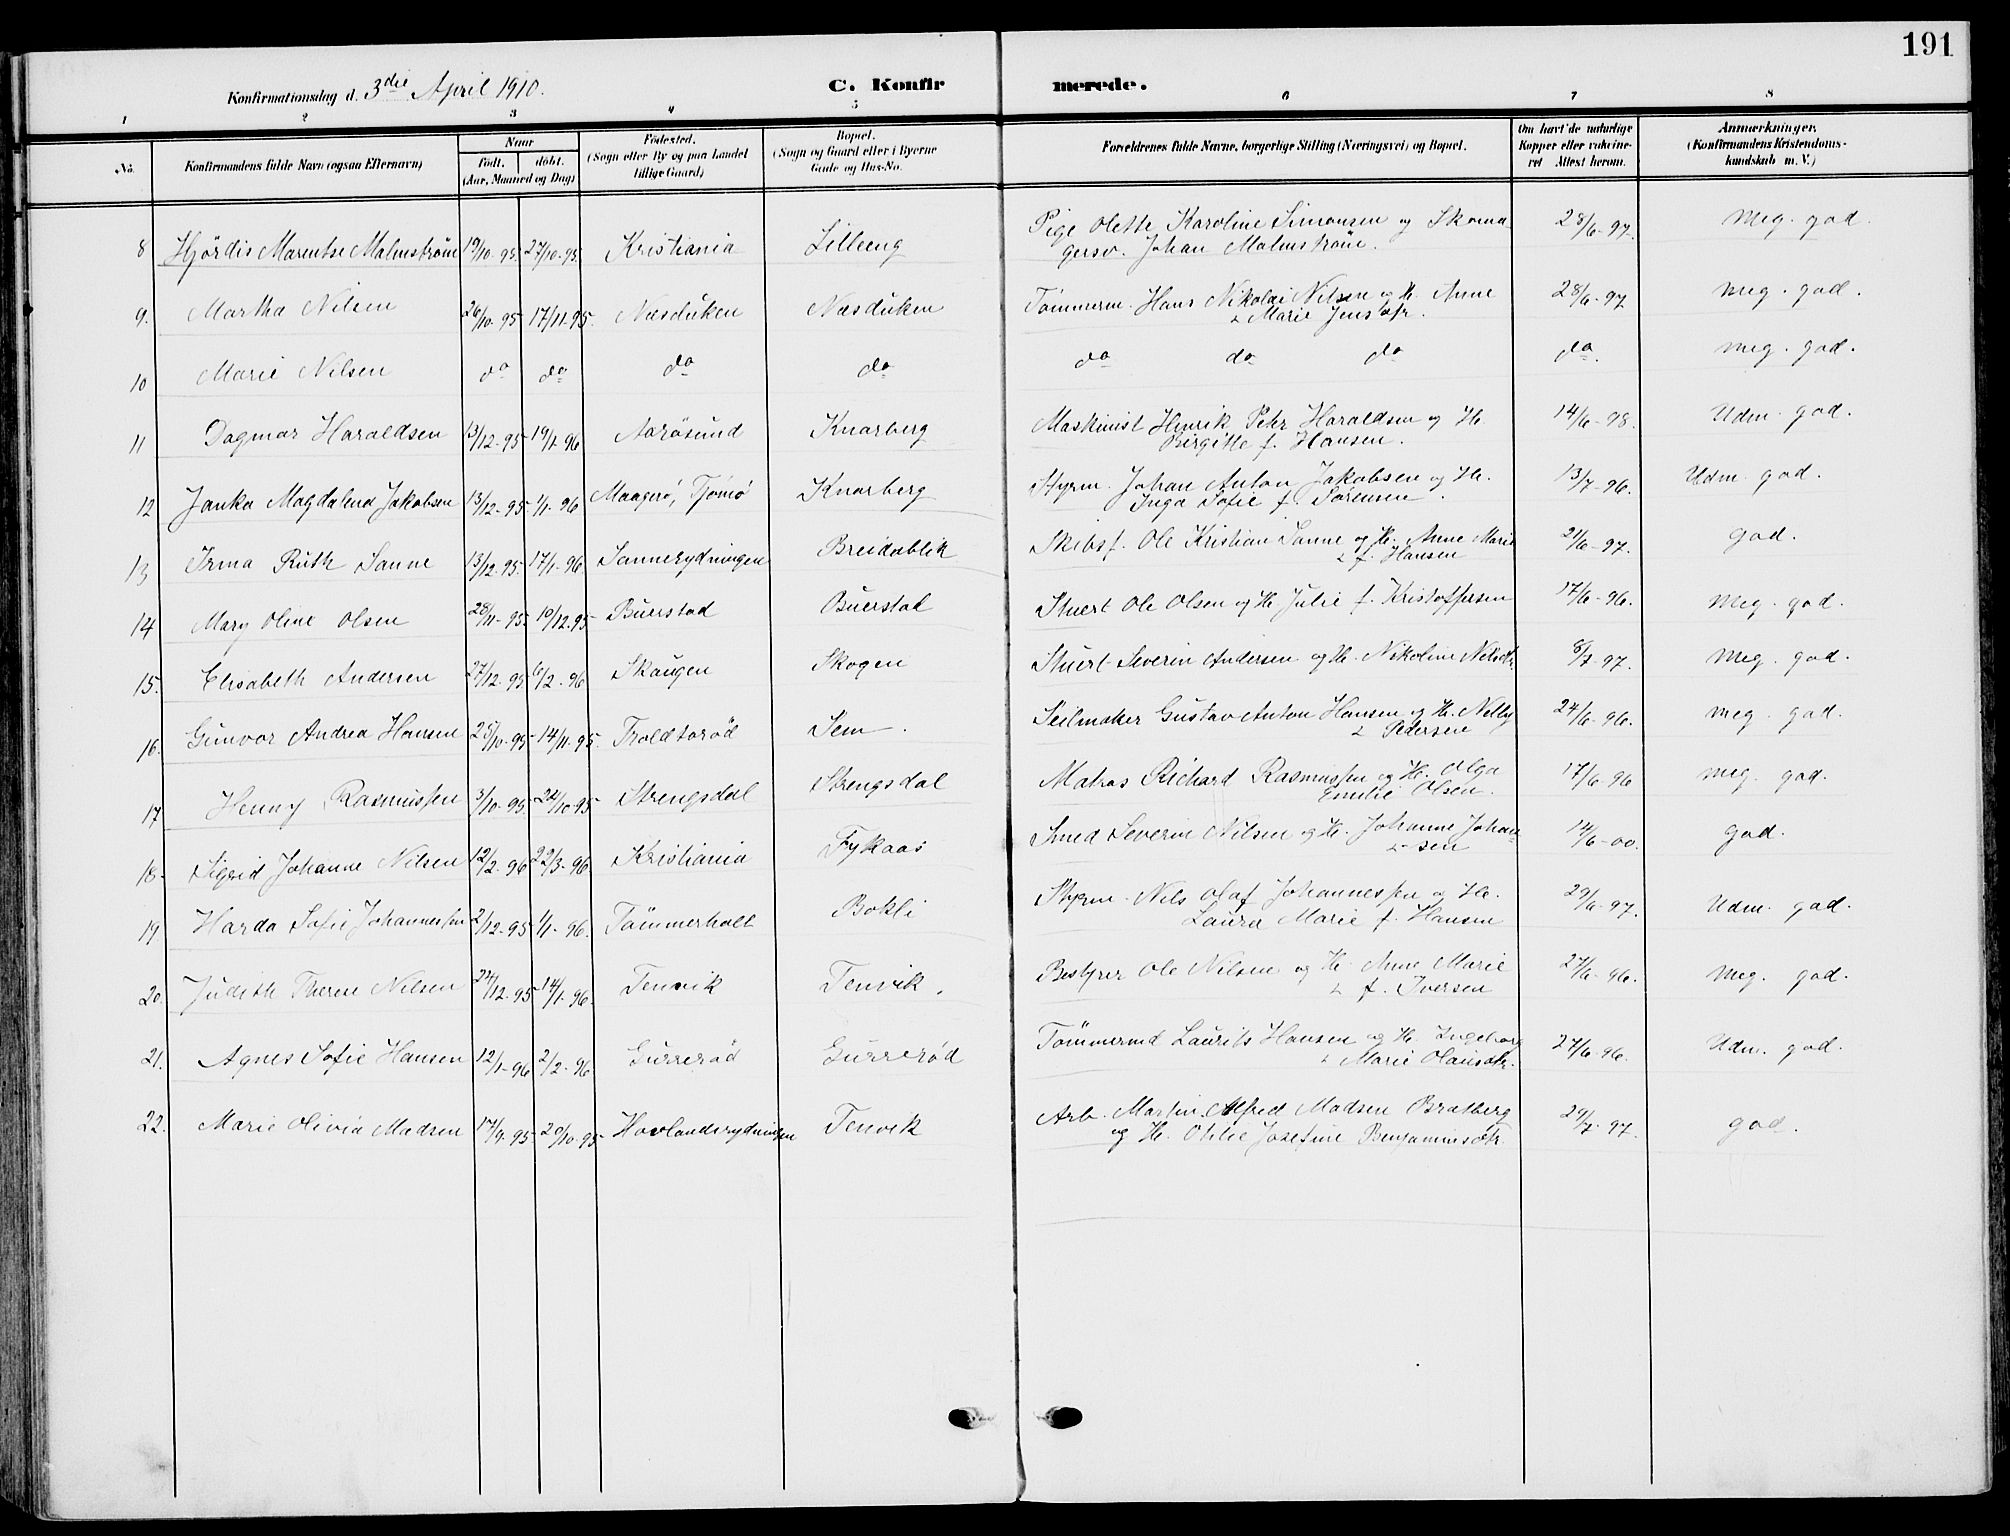 191
Konfirmationsdag d. 3die April 1910.
C. Konfirmerede.
1 2 3 4 5 6 7 8
No. | Konfirmandens fulde Navn (ogsaa Efternavn) | Naar født. døbt. (Aar, Maaned og Dag) | Fødested. (Sogn eller By og paa Landet tillige Gaard) | Bopæl. (Sogn og Gaard eller i Byerne Gade og Hus-No. | Forældrenes fulde Navne, borgerlige Stilling (Næringsvei) og Bopæl. | Om havt de naturlige Kopper eller vaksineret Attest herom. | Anmærkninger. (Konfirmandens Kristendomskundskab m. V.)
8 Hjördis Marentse Malmström 19/10-95. 27/10-95. Kristiania Lilleeng Pige Olette Karoline Simonsen og Skomagersv. Johan Malmström. 28/6-97. Meg. god.
9. Martha Nilsen 26/10-95 17/11-95. Næsduken Næsduken Tömmerm. Hans Nikolai Nilsen og H. Anne Marie Jensdtr. 28/6-97 Meg. god.
10 Marie Nilsen do do do do do do do do. Meg. god.
11 Dagmar Haraldsen 13/12-95 19/1-96 Aarösund Knarberg Maskinist Henrik Petr Haraldsen og H. Birgitte f. Hansen. 14/6-98. Udm. god.
12 Janka Magdalena Jakobsen 13/12-95 1/1-96 Maagerö, Tjömö Knarberg Styrm. Johan Anton Jakobsen og H. Inga Sofie f. Sörensen. 13/7-96. Udm. god.
13 Irma Ruth Sanne 13/12-95. 17/1-96. Sannerydningen Breidablik Skibsf. Ole Kristian Sanne og H. Anne Marie f. Hansen 21/6-97. god.
14 Mary Oline Olsen 28/11-95. 10/12.95 Buerstad Buerstad Stuert Ole Olsen og H. Julie f. Kristoffersen 17/6-96. Meg. god.
15. Elisabeth Andersen 27/12-95 6/2-96 Skaugen Skogen Stuert Severin Andersen og H. Nikoline Nilsdtr. 8/7-97. Meg. god.
16. Gunvor Andrea Hansen 25/10-95 14/11.95. Troldsröd Sem. Seilmaker Gustav Anton Hansen og H. Nelly Pedersen 24/6-96. Meg. god.
17 Henny Rasmussen 3/10-95. 24/10-95 Strengsdal Strengsdal Matros Richard Rasmussen og H. Olga Emilie Olsen. 17/6-96 Meg. god.
18. Sigrid Johanne Nilsen 12/2-96 22/3-96. Kristiania Fykaas Smed Severin Nilsen og H. Johanne Johansen 14/6-00. god.
19 Harda Sofie Johannessen 2/12-95 1/1-96. Tömmerholt Bokli Styrm. Nils Olaf Johannessen og H. Laura Marie f. Hansen 29/6-97. Udm. god.
20. Judith Therese Nilsen 24/12-95 14/1-96. Tenvik Tenvik. Bestyrer Ole Nilsen og H. Anne Marie f. Iversen 27/6-96. Meg. god.
21. Agnes Sofie Hansen 12/1-96 2/2-96 Gurreröd Gurreröd Tömmermd Laurits Hansen og H. Ingeborg Marie Olausdtr. 27/6-96. Udm. god.
22. Marie Olivia Madsen 17/9-95 20/10-95 Hovlandsrydningen Tenvik Arb. Martin Alfred Madsen Bratberg og H. Otilie Josefine Benjaminsdtr. 29/7-97. god.